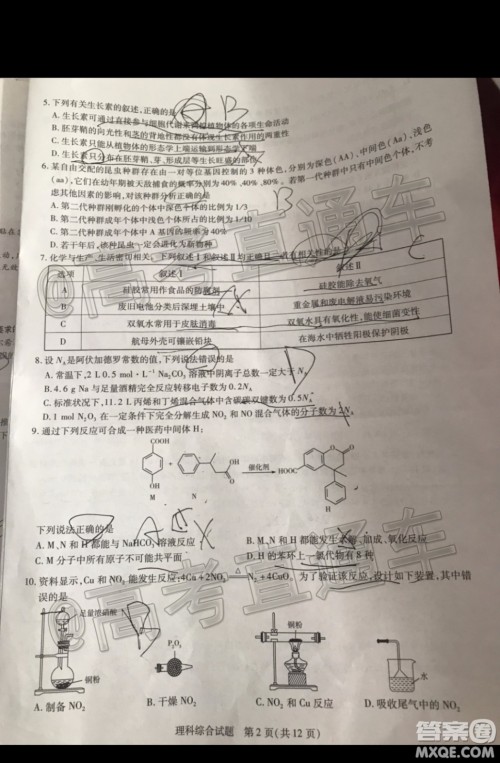 5. 下列有关生长素的叙述,正确的是
A. 生长素可通过直接参与细胞代谢来调控植物体的各项生命活动
B. 胚芽鞘的向光性和茎的背地性都没有体现生长素作用的两重性
C. 生长素只能从植物体的形态学上端运输到形态学下端
D. 生长素只分布在胚芽鞘、芽、形成层等生长旺盛的部位
6. 某自由交配的昆虫种群存在由一对等位基因控制的3种体色,分别为深色(AA)、中间色(Aa)、浅色
(aa),它们在幼年期被天敌捕食的概率分别为40%、40%、80%。若第一代种群中只有中间色个体,不考
虑其他因素的影响,对该种群分析正确的是
A. 第二代种群刚孵化的个体中深色个体的比例为1/3
B. 第二代种群成年个体中浅色个体所占的比例为1/10
C. 第二代种群成年个体中A基因的频率为
D. 若干年后,该种昆虫一定会进化为新物种
7. 化学与生产、生活密切相关。下列叙述Ⅰ和叙述Ⅱ均正确且二者有相关性的是
选项 叙述Ⅰ 叙述Ⅱ
A 硅胶常用作食品的防腐剂 硅胶能除去氧气
B 废旧电池分类后深埋土壤中 重金属和废电解液易污染环境
C 双氧水常用于皮肤消毒 双氧水具有氧化性,能使细菌变性
D 航母外壳可镶嵌铅块 在海水中牺牲阳极保护阴极
8. 设 Nₐ 是阿伏加德罗常数的值,下列说法错误的是
A. 常温下,2 L 0.5 mol·L⁻¹ Na₂CO₃ 溶液中阴离子总数一定大于 Nₐ
B. 4.6 g Na 与足量酒精完全反应转移电子数为 0.2Nₐ
C. 标准状况下,11.2 L 丙烯和丁烯混合气体中含碳碳双键数为 0.5Nₐ
D. 1 mol N₂O₃ 在一定条件下完全分解生成 NO₂ 和 NO 混合气体的分子数为 2Nₐ
9. 通过下列反应可合成一种医药中间体 H:
COOH
HO
M
OH
O
N
催化剂
HOOC
O
O
H
下列说法正确的是
A. M、N 和 H 都能与 NaHCO₃ 溶液反应
B. M、N 和 H 都能发生水解、加成、氧化反应
C. M 分子中所有原子不可能共平面
D. H 的苯环上一氯代物有 8 种
10. 资料显示,Cu 和 NO₂ 能发生反应:4Cu+2NO₂ △ N₂+4CuO。为了验证该反应,设计如下装置,其中错
误的是
足量浓硝酸
铜粉
P₂O₅
铜粉
水
A. 制备 NO₂
B. 干燥 NO₂
C. NO₂ 和 Cu 反应
D. 吸收尾气中的 NO₂
理科综合试题 第 2 页(共 12 页)
@高考直通车
@高考直通车
答案圈
MXQE.COM